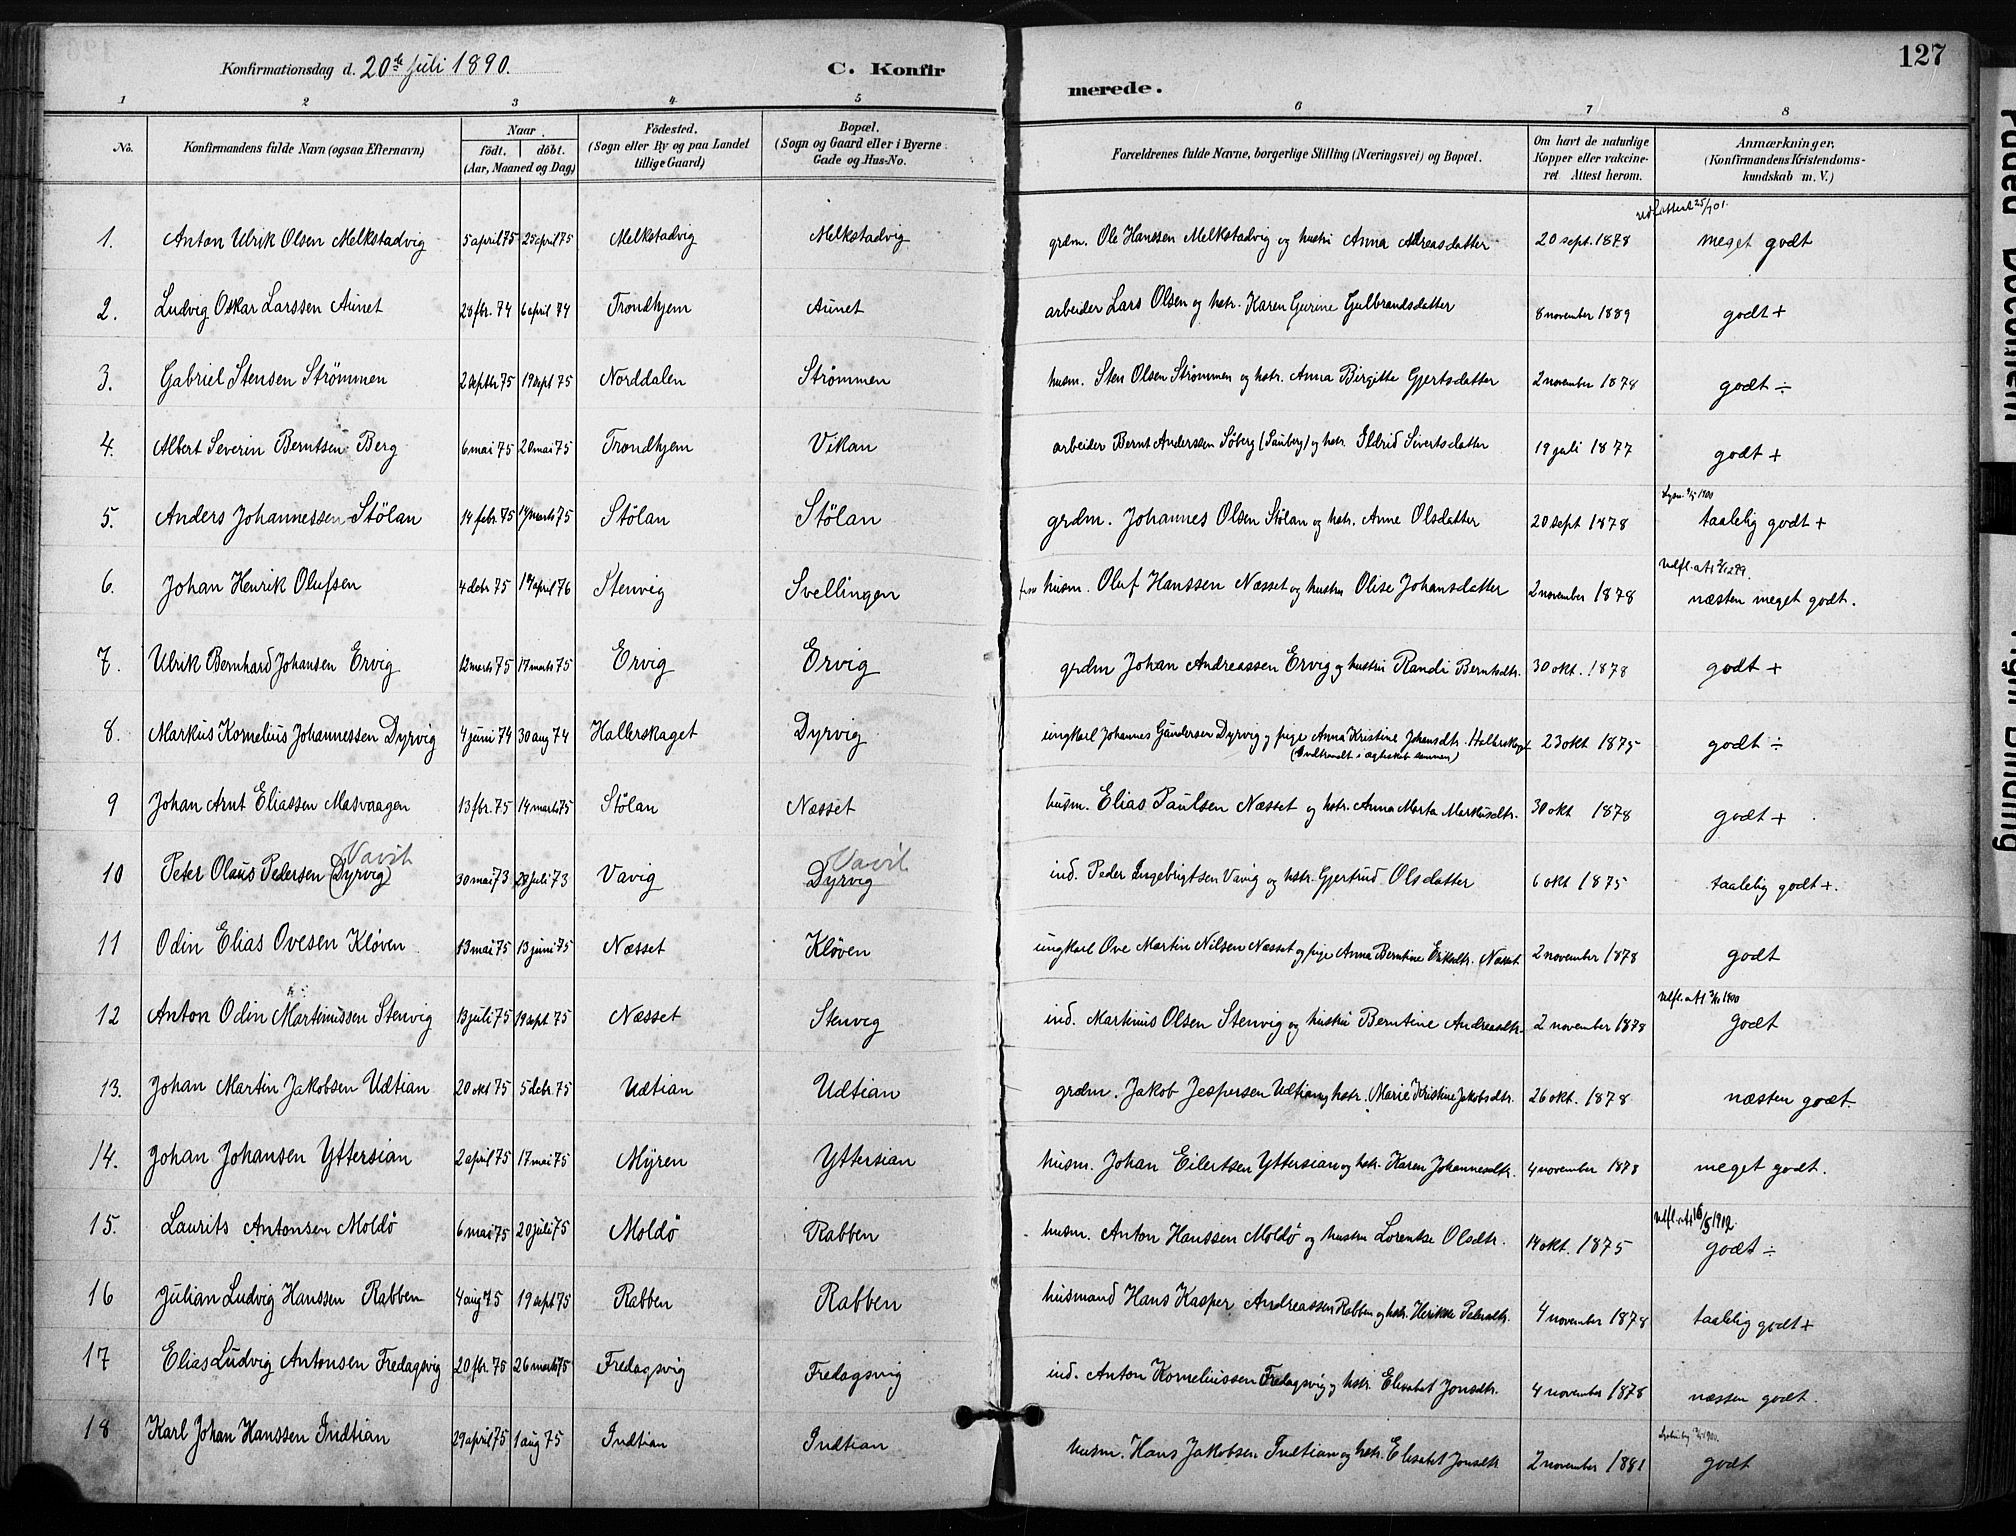 Konfirmationsdag d. 20de Juli 1890.
C. Konfirmerede.
127
1 2 3 4 5 6 7 8
No.
Konfirmandens fulde Navn (ogsaa Efternavn)
Naar
födt. döbt.
(Aar, Maaned og Dag)
Födested.
(Sogn eller By og paa Landet
tillige Gaard)
Bopæl.
(Sogn og Gaard eller i Byerne
Gade og Hus-No.
Forældrenes fulde Navne, borgerlige Stilling (Næringsvei) og Bopæl.
Om havt de naturlige
Kopper eller vakcine-
ret Attest herom.
Anmærkninger.
(Konfirmandens Kristendoms-
kundskab m. V.)
1. Anton Ulrik Olsen Melkstadvig 5 april 75 25 april 75 Melkstadvig Melkstadvig grdm. Ole Hanssen Melkstadvig og hustru Anna Andreasdatter 20 sept. 1878 meget godt
2. Ludvig Oskar Larssen Aunet 28 fbr. 74 6 april 74 Trondhjem Aunet arbeider Lars Olsen og hstr. Karen Gurine Gulbrandsdatter 8 november 1889 godt +
3. Gabriel Stensen Strömmen 2 septbr 75 19 sept 75 Norddalen Strömmen husm. Sten Olsen Strömmen og hstr. Anna Birgitte Gjertsdatter 2 november 1878 godt ÷
4. Albert Severin Berntsen Berg 6 mai 75 20 mai 75 Trondhjem Vikan arbeider Bernt Anderssen Söberg (Sauberg) og hstr. Ildrid Sivertsdatter 19 juli 1877 godt +
5. Anders Johannessen Stölan 14 febr. 75 14 marts 75 Stölan Stölan grdm. Johannes Olsen Stölan og hstr. Anne Olsdatter 20 sept 1878 taalelig godt +
6. Johan Henrik Olufsen 4 debr 75 19 april 76 Stenvig Svellingen husm. Oluf Hanssen Næsset og hustru Olise Johansdatter 2 november 1878 næsten meget godt.
7. Ulrik Bernhard Johansen Ervig 12 marts 75 17 marts 75 Ervig Ervig grdm Johan Andreassen Ervig og hustru Randi Berntsdtr. 30 okt. 1878 godt +
8. Markus Kornelius Johannessen Dyrvig 4 juni 74 30 aug 74 Hallerskaget Dyrvig ungkarl Johannes Gundersen Dyrvig og pige Anna Kristine Johansdtr. Hallerskaget 23 okt 1875 godt ÷
(indtraadt i ægteskab sammen)
9 Johan Arnt Eliassen Masvaagen 13 fbr. 75 14 marts 75 Stölan Næsset husm. Elias Paulsen Næsset og hstr. Anna Marta Markusdtr. 30 okt 1878 godt +
Vavik Vavik
10 Peter Olaus Pedersen (Dyrvig) 30 mai 73 20 juli 73 Vavig Dyrvig ind. Peder Ingebrigtsen Vavig og hstr. Gjertrud Olsdatter 6 okt 1875 taalelig godt +.
11 Odin Elias Ovesen Klöven 13 mai 75 13 juni 75 Næsset Klöven ungkarl Ove Martin Nilsen Næsset og pige Anna Berntine Eriksdtr. Næsset 2 november 1878 godt
12 Anton Odin Martinussen Stenvig 13 juli 75 19 sept 75 Næsset Stenvig ind. Martinus Olsen Stenvig og hustru Berntine Andreasdtr. 2 november 1878 godt
13. Johan Martin Jakobsen Udtian 20 okt 75 5 debr. 75 Udtian Udtian grdm. Jakob Jespersen Udtian og hstr. Marie Kristine Jakobsdtr. 26 okt. 1878 næsten godt.
14. Johan Johansen Yttersian 2 april 75 17 mai 75 Myren Yttersian husm. Johan Eilertsen Yttersian og hstr. Karen Johannesdtr. 4 november 1878 meget godt.
15. Laurits Antonsen Moldö 6 mai 75 20 juli 75 Moldö Rabben husm. Anton Hanssen Moldö og hustru Lorentse Olsdtr. 14 okt. 1875 godt ÷
16 Julian Ludvig Hanssen Rabben 4 aug 75 19 sept 75 Rabben Rabben husmand Hans Kasper Andreassen Rabben og hstr. Henrikke Pedersdtr. 4 november 1878 taalelig godt +
17 Elias Ludvig Antonsen Fredagsvig 20 fbr. 75 26 marts 75 Fredagsvig Fredagsvig ind. Anton Korneliussen Fredagsvig og hstr. Elisabet Jonsdtr. 4 november 1878 næsten godt.
18 Karl Johan Hanssen Indtian 29 april 75 1 aug 75 Indtian Indtian husm. Hans Jakobsen Indtian og hstr. Elisabet Jonsdtr 2 november 1881 godt